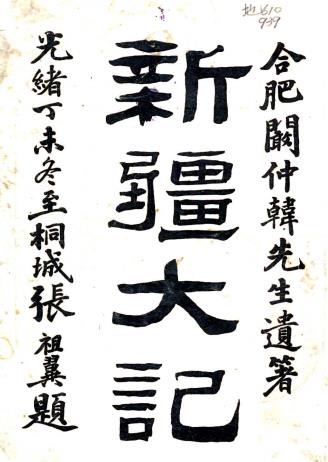 合肥闞仲韓先生遺箸
新疆大記
光緒丁未冬至桐城張祖翼題
地610
939